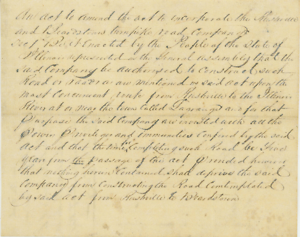 An act to amend the act to incorporate the
and Beardstown turnpike road Company
Sect. 1 Be it Enacted by the People of the State of
Illinois represented in the General assembly that the
Said Company be authorised to Construct such
Road as are mentioned in said act upon
the most Convenient route from Rushville to the Illinois
River at or near the town called and for that
Purpose the Said Company are invested with all the
Power Privileges and immunities Confired by the said
act and that the time Completing such Road be
years from the passage of this act Provided however
that nothing herein Contained Shall deprive the said
Company from Constructing the Road Contemplated
by said Act from Rushville to Beardstown